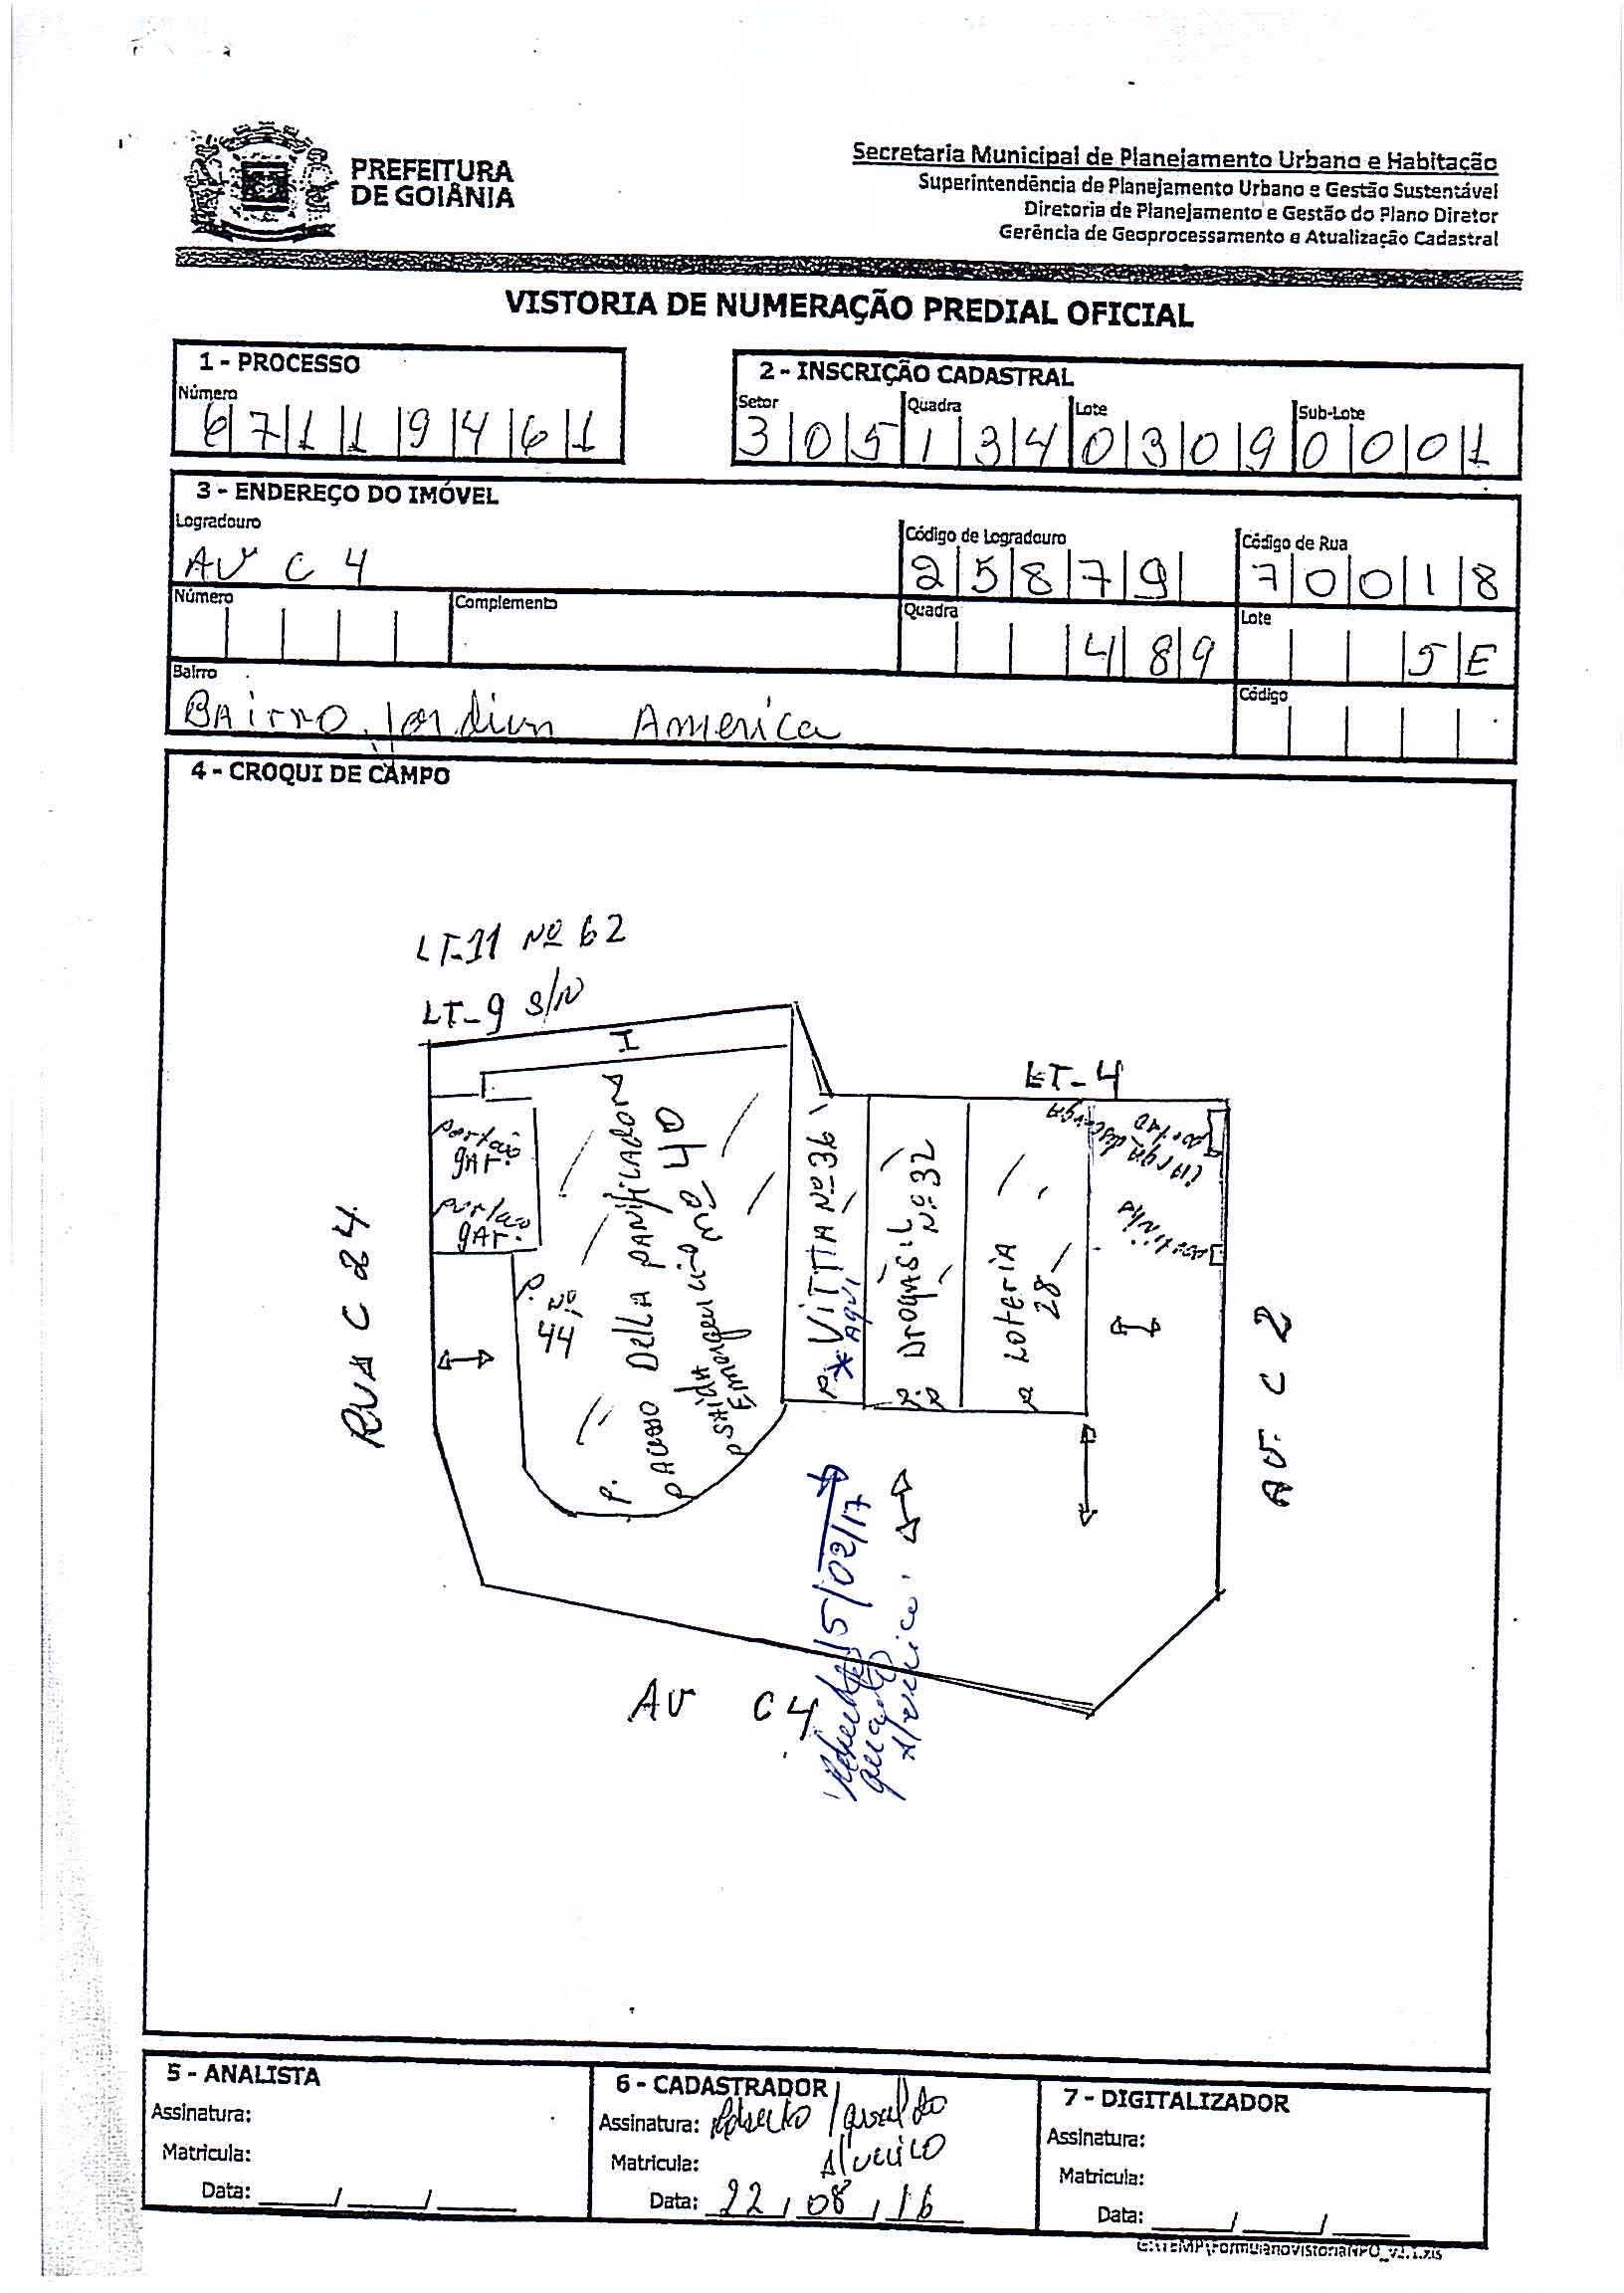 PREFEITURA
DE GOIÂNIA
Secretaria Municipal de Planejamento Urbano e Habitação
Superintendência de Planejamento Urbano e Gestão Sustentável
Diretoria de Planejamento e Gestão do Plano Diretor
Gerência de Geoprocessamento e Atualização Cadastral
VISTORIA DE NUMERAÇÃO PREDIAL OFICIAL
1 - PROCESSO
Número
67119461
2 - INSCRIÇÃO CADASTRAL
Setor Quadra Lote Sub-Lote
305 134 0309 0001
3 - ENDEREÇO DO IMÓVEL
Logradouro Código de Logradouro Código de Rua
AV C 4 25879 70018
Número Complemento Quadra Lote
489 5E
Bairro Código
BAIRRO Jardim America
4 - CROQUI DE CAMPO
LT-11 Nº 62
LT-9 S/N
LT-4
portão
gar.
portão
gar.
P. Nº
44
P. Acesso DELLA PANIFICADORA
P SAIDA
Emergencia nº 40
P * VITTIA Nº 36
AQUI
DROGASIL
Nº 32
P. P.
LOTERIA
28
P
CARGA descarga
portão
RUA C 24
AV. C 2
AV C 4
15/02/17
Roberto
Alverico
5 - ANALISTA
Assinatura:
Matricula:
Data: ____/____/____
6 - CADASTRADOR
Assinatura: Roberto
Alverico
Matricula:
Data: 22/08/16
7 - DIGITALIZADOR
Assinatura:
Matricula:
Data: ____/____/____
G:\TEMP\FormularioVistoriaNPO_v2.1.xls